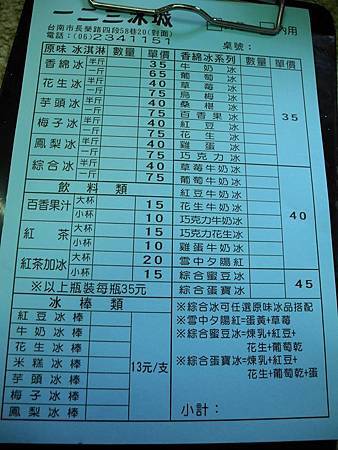 一二三冰城
內用
台南市長榮路四段58巷20(對面)
電話:(06)2341151
桌號:
原味 冰淇淋 數量 單價
香綿冰 半斤 35
一斤 65
花生冰 半斤 40
一斤 75
芋頭冰 半斤 40
一斤 75
梅子冰 半斤 40
一斤 75
鳳梨冰 半斤 40
一斤 75
綜合冰 半斤 40
一斤 75
飲料類
百香果汁 大杯 15
小杯 10
紅茶 大杯 15
小杯 10
紅茶加冰 大杯 20
小杯 15
※以上瓶裝每瓶35元
冰棒類
紅豆冰棒
牛奶冰棒
花生冰棒
米糕冰棒
芋頭冰棒
梅子冰棒
鳳梨冰棒
13元/支
香綿冰系列 數量 單價
牛奶冰
葡萄冰
草莓冰
烏梅冰
桑椹冰
百香果冰
紅豆冰
花生冰
雞蛋冰
巧克力冰
35
草莓牛奶冰
葡萄牛奶冰
紅豆牛奶冰
花生牛奶冰
巧克力牛奶冰
巧克力花生冰
雞蛋牛奶冰
雪中夕陽紅
40
綜合蜜豆冰
綜合蛋寶冰
45
※綜合冰可任選原味冰品搭配
※雪中夕陽紅=蛋黃+草莓
※綜合蜜豆冰=煉乳+紅豆+
花生+葡萄乾
※綜合蛋寶冰=煉乳+紅豆+
花生+葡萄乾+蛋
小計: